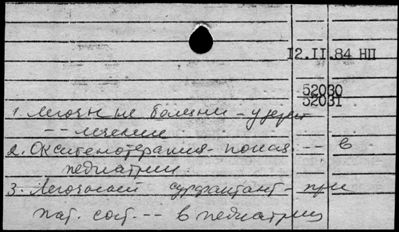 12.II.84 НП
52030
52031
1. Легочные болезни - у детей
-- лечение
2. Окситенотерапия - новая -- в
педиатрии.
3. Легочный сурфактант - при
пат. сост. -- в педиатрии